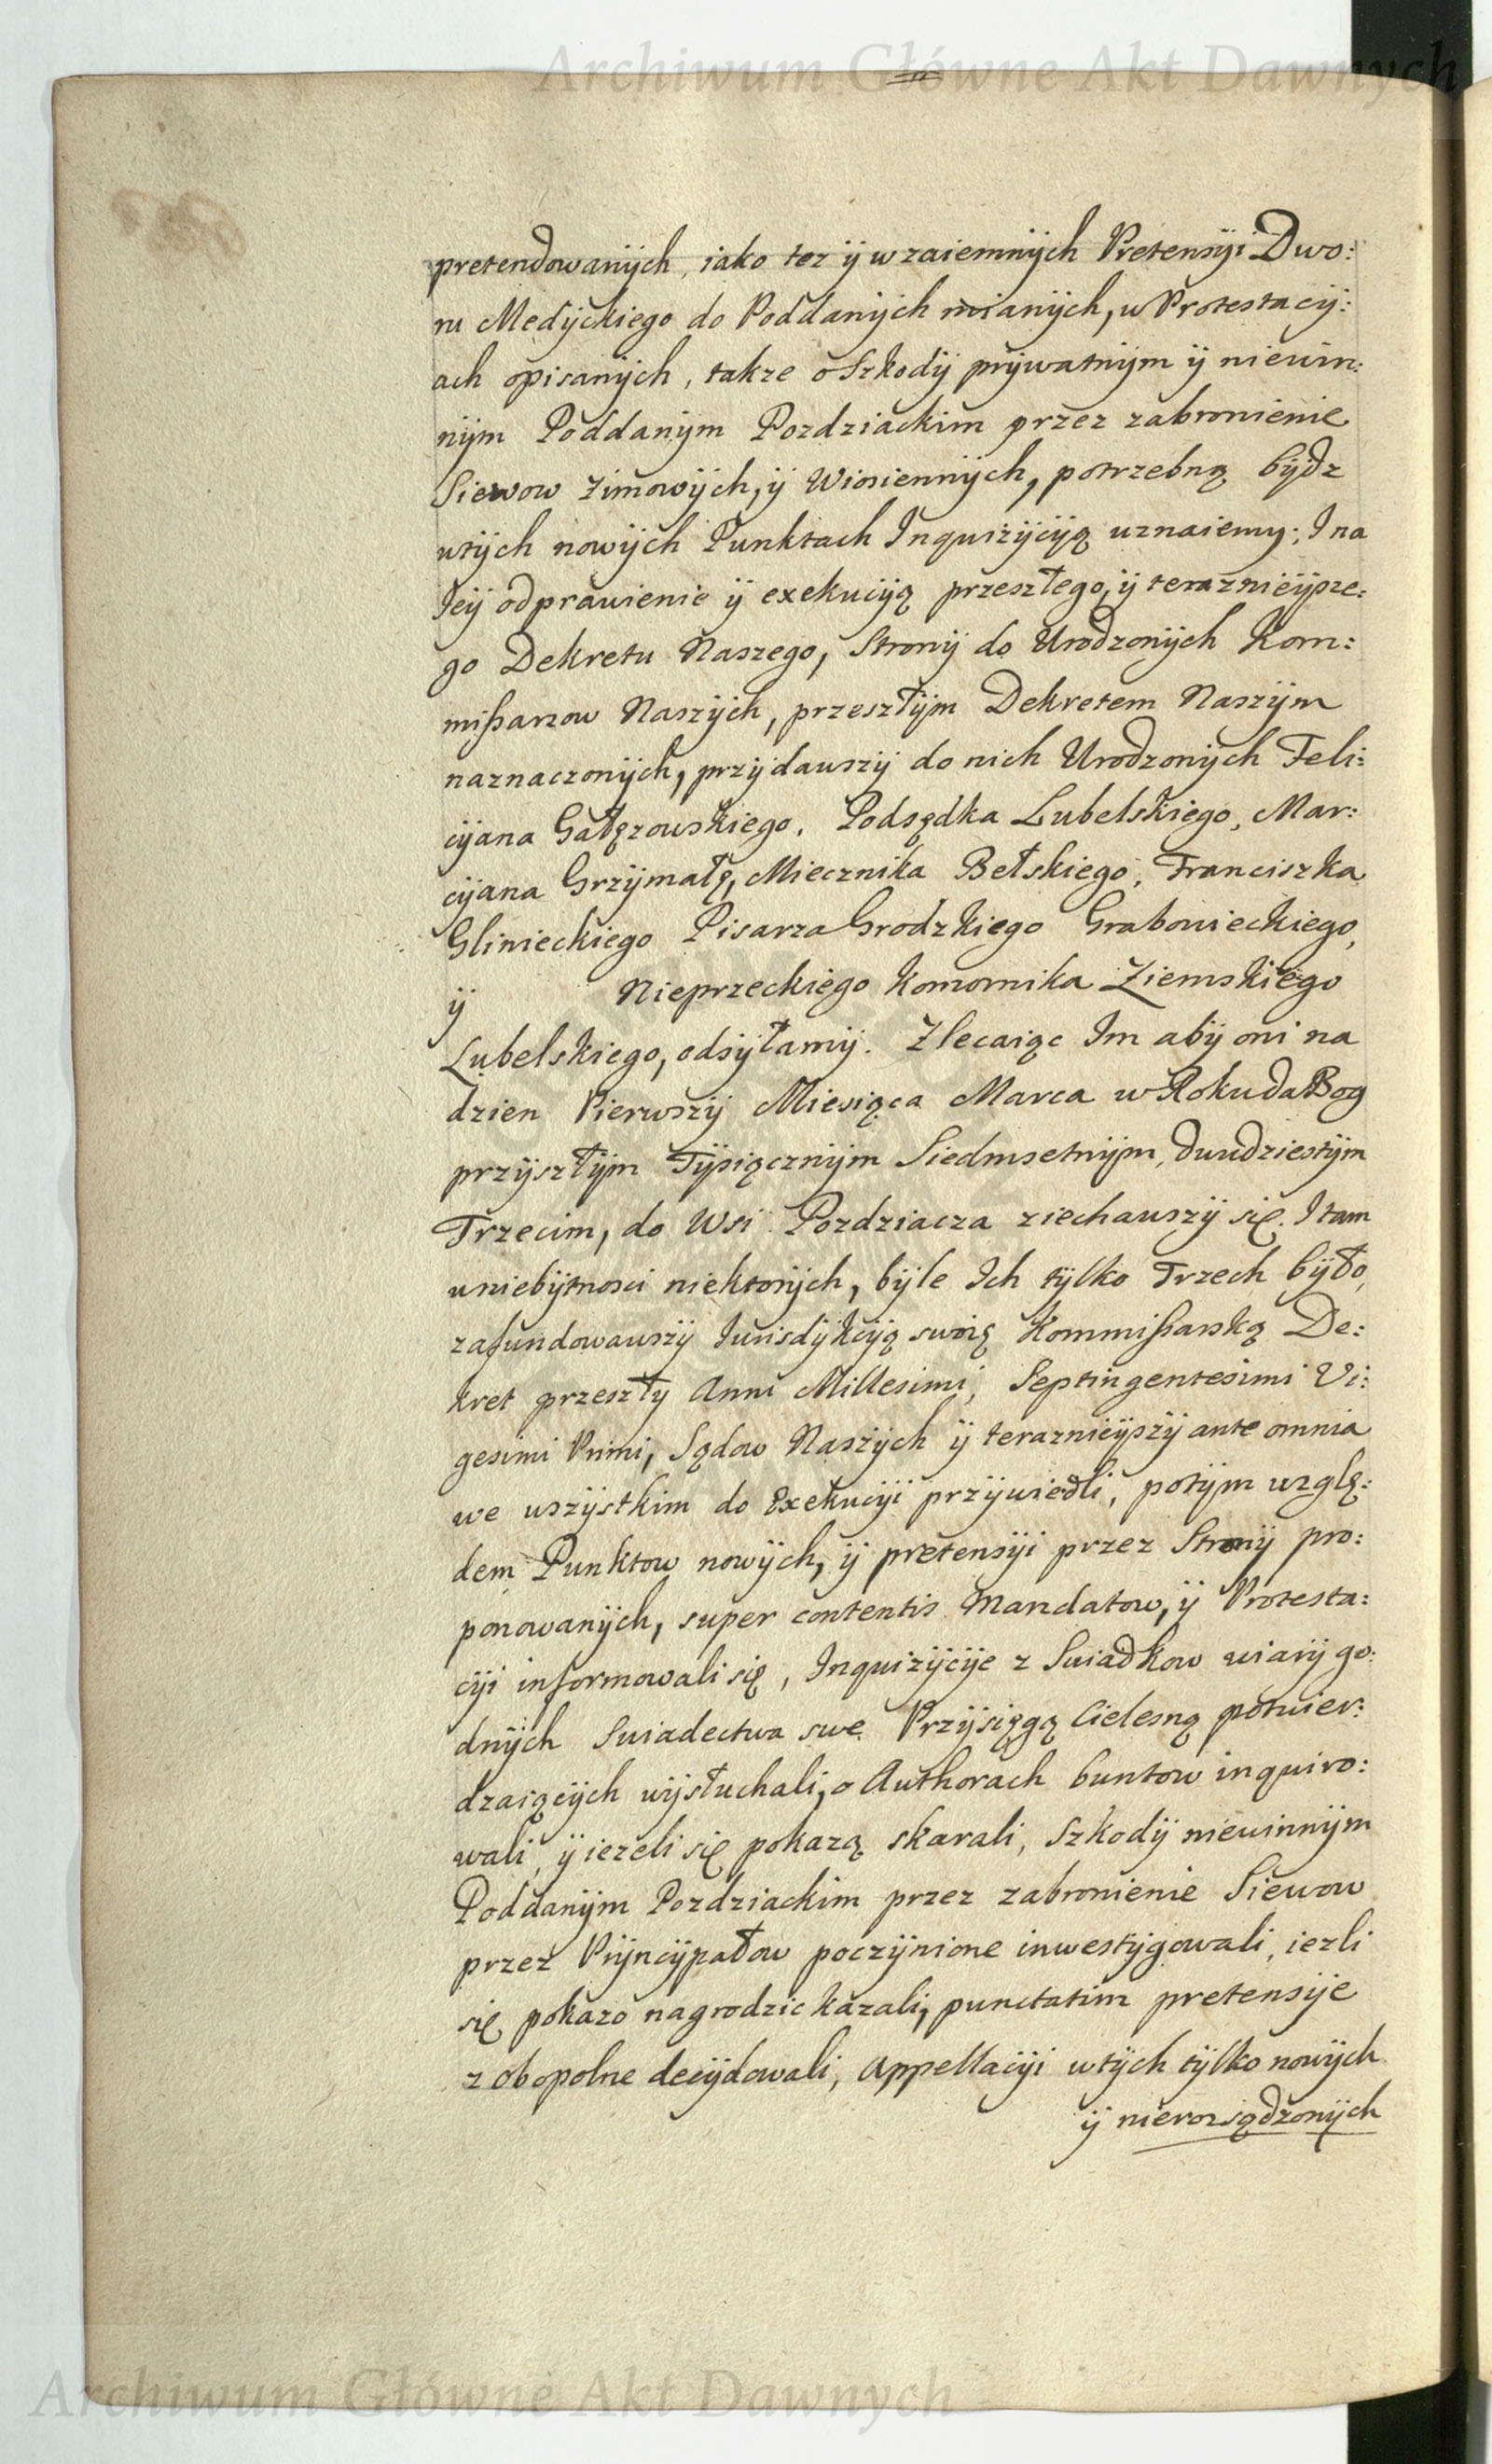 Archiwum Główne Akt Dawnych
pretendowanÿch, iako tez ÿ wzaiemnÿch Pretensÿi Dwo:
ru Medÿckiego do Poddanÿch mianÿch, w Protestacÿ:
ach opisanÿch, takze o Szkodÿ prÿwatnÿm ÿ niewin:
nÿm Poddanÿm Pozdziackim przez zabronienie
Siewow zimowÿch, ÿ Wiosiennÿch, potrzebną bÿdz
wtÿch nowÿch Punktach Inquizÿcÿą uznaiemy; I na
Ieÿ odprawienie ÿ exekucÿą przeszłego, ÿ teraznieÿsze:
go Dekretu Naszego, Stronÿ do Urodzonÿch Kom:
mißarzow Naszÿch, przeszłÿm Dekretem Naszÿm
naznaczonÿch, przÿdawszÿ do nich Urodzonÿch Feli:
cÿana Gałęzowskiego, Podsędka Lubelskiego, Mar:
cÿana Grzÿmałę, Miecznika Bełskiego, Franciszka
Glinieckiego Pisarza Grodzkiego Grabowieckiego,
ÿ Nieprzeckiego Komornika Ziemskiego
Lubelskiego, odsÿłamÿ. Zlecaiąc Im abÿ oni na
dzien Pierwszÿ Miesiąca Marca w Roku da Bog
przÿszłÿm Tÿsiącznÿm Siedmsetnÿm, dwudziestÿm
Trzecim, do Wsi Pozdziacza ziechawszÿ się. I tam
wniebÿtnosci niektorÿch, bÿle Ich tÿlko Trzech bÿło,
zafundowawszÿ Iurisdÿkcÿą swoię Kommißarską De:
kret przeszłÿ Anni Millesimi, Septingentesimi Vi:
gesimi Primi, Sądow Naszÿch ÿ teraznieÿszÿ ante omnia
we wszÿstkim do Exekucÿi przÿwiedli, potÿm wzglę:
dem Punktow nowÿch, ÿ pretensÿi przez Stronÿ pro:
ponowanÿch, super contentis Mandatow, ÿ Protesta:
cÿi informowali się, Inquizÿcÿe z Swiadkow wiarÿ go:
dnÿch Swiadectwa swe Przÿsięgą Cielesną potwier:
dzaiącÿch wÿsłuchali, o Authorach buntow inquiro:
wali, ÿ iezeli się pokazą skarali, Szkodÿ niewinnÿm
Poddanÿm Pozdziackim przez zabronienie Siewow
przez Prÿncÿpałow poczÿnione inwestÿgowali, iezli
się pokazo nagrodzic kazali, punctatim pretensÿe
z obopolne decÿdowali, Appellacÿi wtÿch tÿlko nowÿch
ÿ nierozsądzonÿch
Archiwum Główne Akt Dawnych